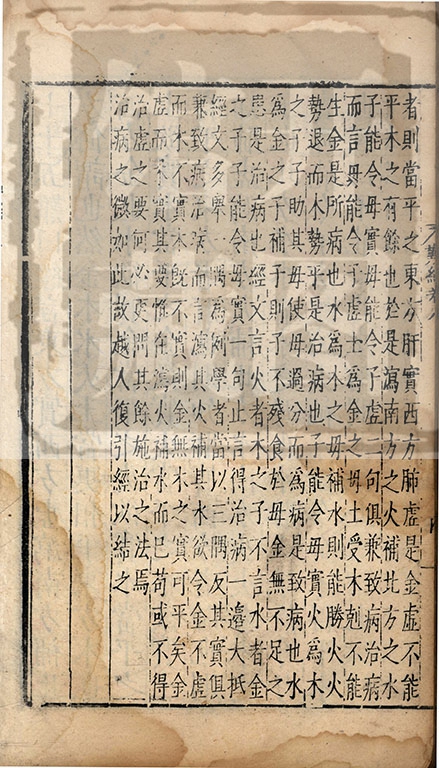 者則當平之東方肝實西方肺虛是金虛不能
平木之有餘也於是瀉南方之火補北方之水
子能令母實母能令子虛二句俱兼致病治病
而言母能令子虛土為金之母土受木剋不能
生金是所病也水為木之母補水則能勝火火
勢退而木勢平是治病也子能令母實火為木
之子子助其母使母過分而為病是致病也水
為金之子補子則子不殘食於母金無不足之
患是治病也經文言火者木之子不言水者金
之子子能令母實一句止言得治病一邊大抵
經文多舉一隅為例學者當以三隅反其實俱
兼致病治病而言瀉其火補其水欲令金不虛
而木不實木旣不實則金無木之實可平矣金
虛而木實其要惟在瀉火補水而已苟或不得
治虛之要何必更問其餘施治之法焉
治病之徵如此故越人復引經以結之